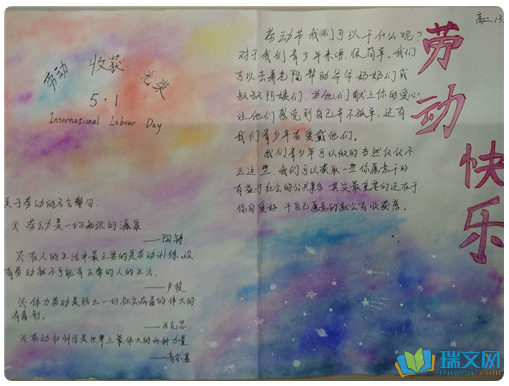 高二.13
劳动快乐
劳动 收获 光荣
5·1
International Labour Day
关于劳动的名言警句:
※ 劳动是一切知识的源泉
——陶铸
※ 在人的生活中最主要的是劳动训练,没
有劳动就不可能有正常的人的生活。
——卢梭
※ 体力劳动是防止一切社会病毒的伟大的
消毒剂。
——马克思
※ 劳动和科学是世界上最伟大的两种力量
——高尔基
劳动节我们可以干什么呢?
对于我们青少年来讲,很简单,我们
可以去养老院帮助爷爷奶奶们或
叔叔阿姨们,为他们献上你的爱心,
让他们感觉到自己并不孤单,还有
我们青少年在爱戴他们。
我们青少年可以做的当然仅仅不
止这些,我们可以读取一些你愿意干的
有益于社会的公共事务,其实最重要的还在于
你的爱好,干自己愿意的就会有收获。
瑞文网